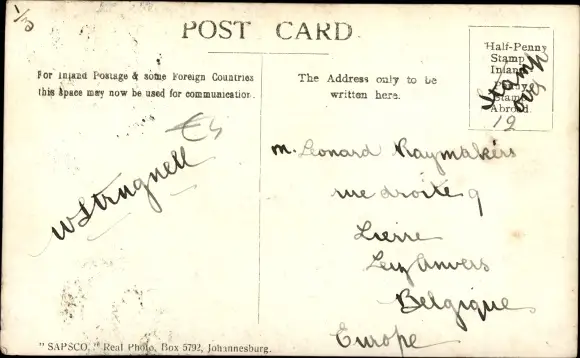 1/3
POST CARD
For Inland Postage & some Foreign Countries
this space may now be used for communication.
The Address only to be
written here.
Half-Penny
Stamp
Inland
Penny
Stamp
Abroad
Stamp
over
12
€4
W Strugnell
M. Leonard Raymakers
rue droite 9
Lierre
Lez Anvers
Belgique
Europe
"SAPSCO," Real Photo, Box 5792, Johannesburg.